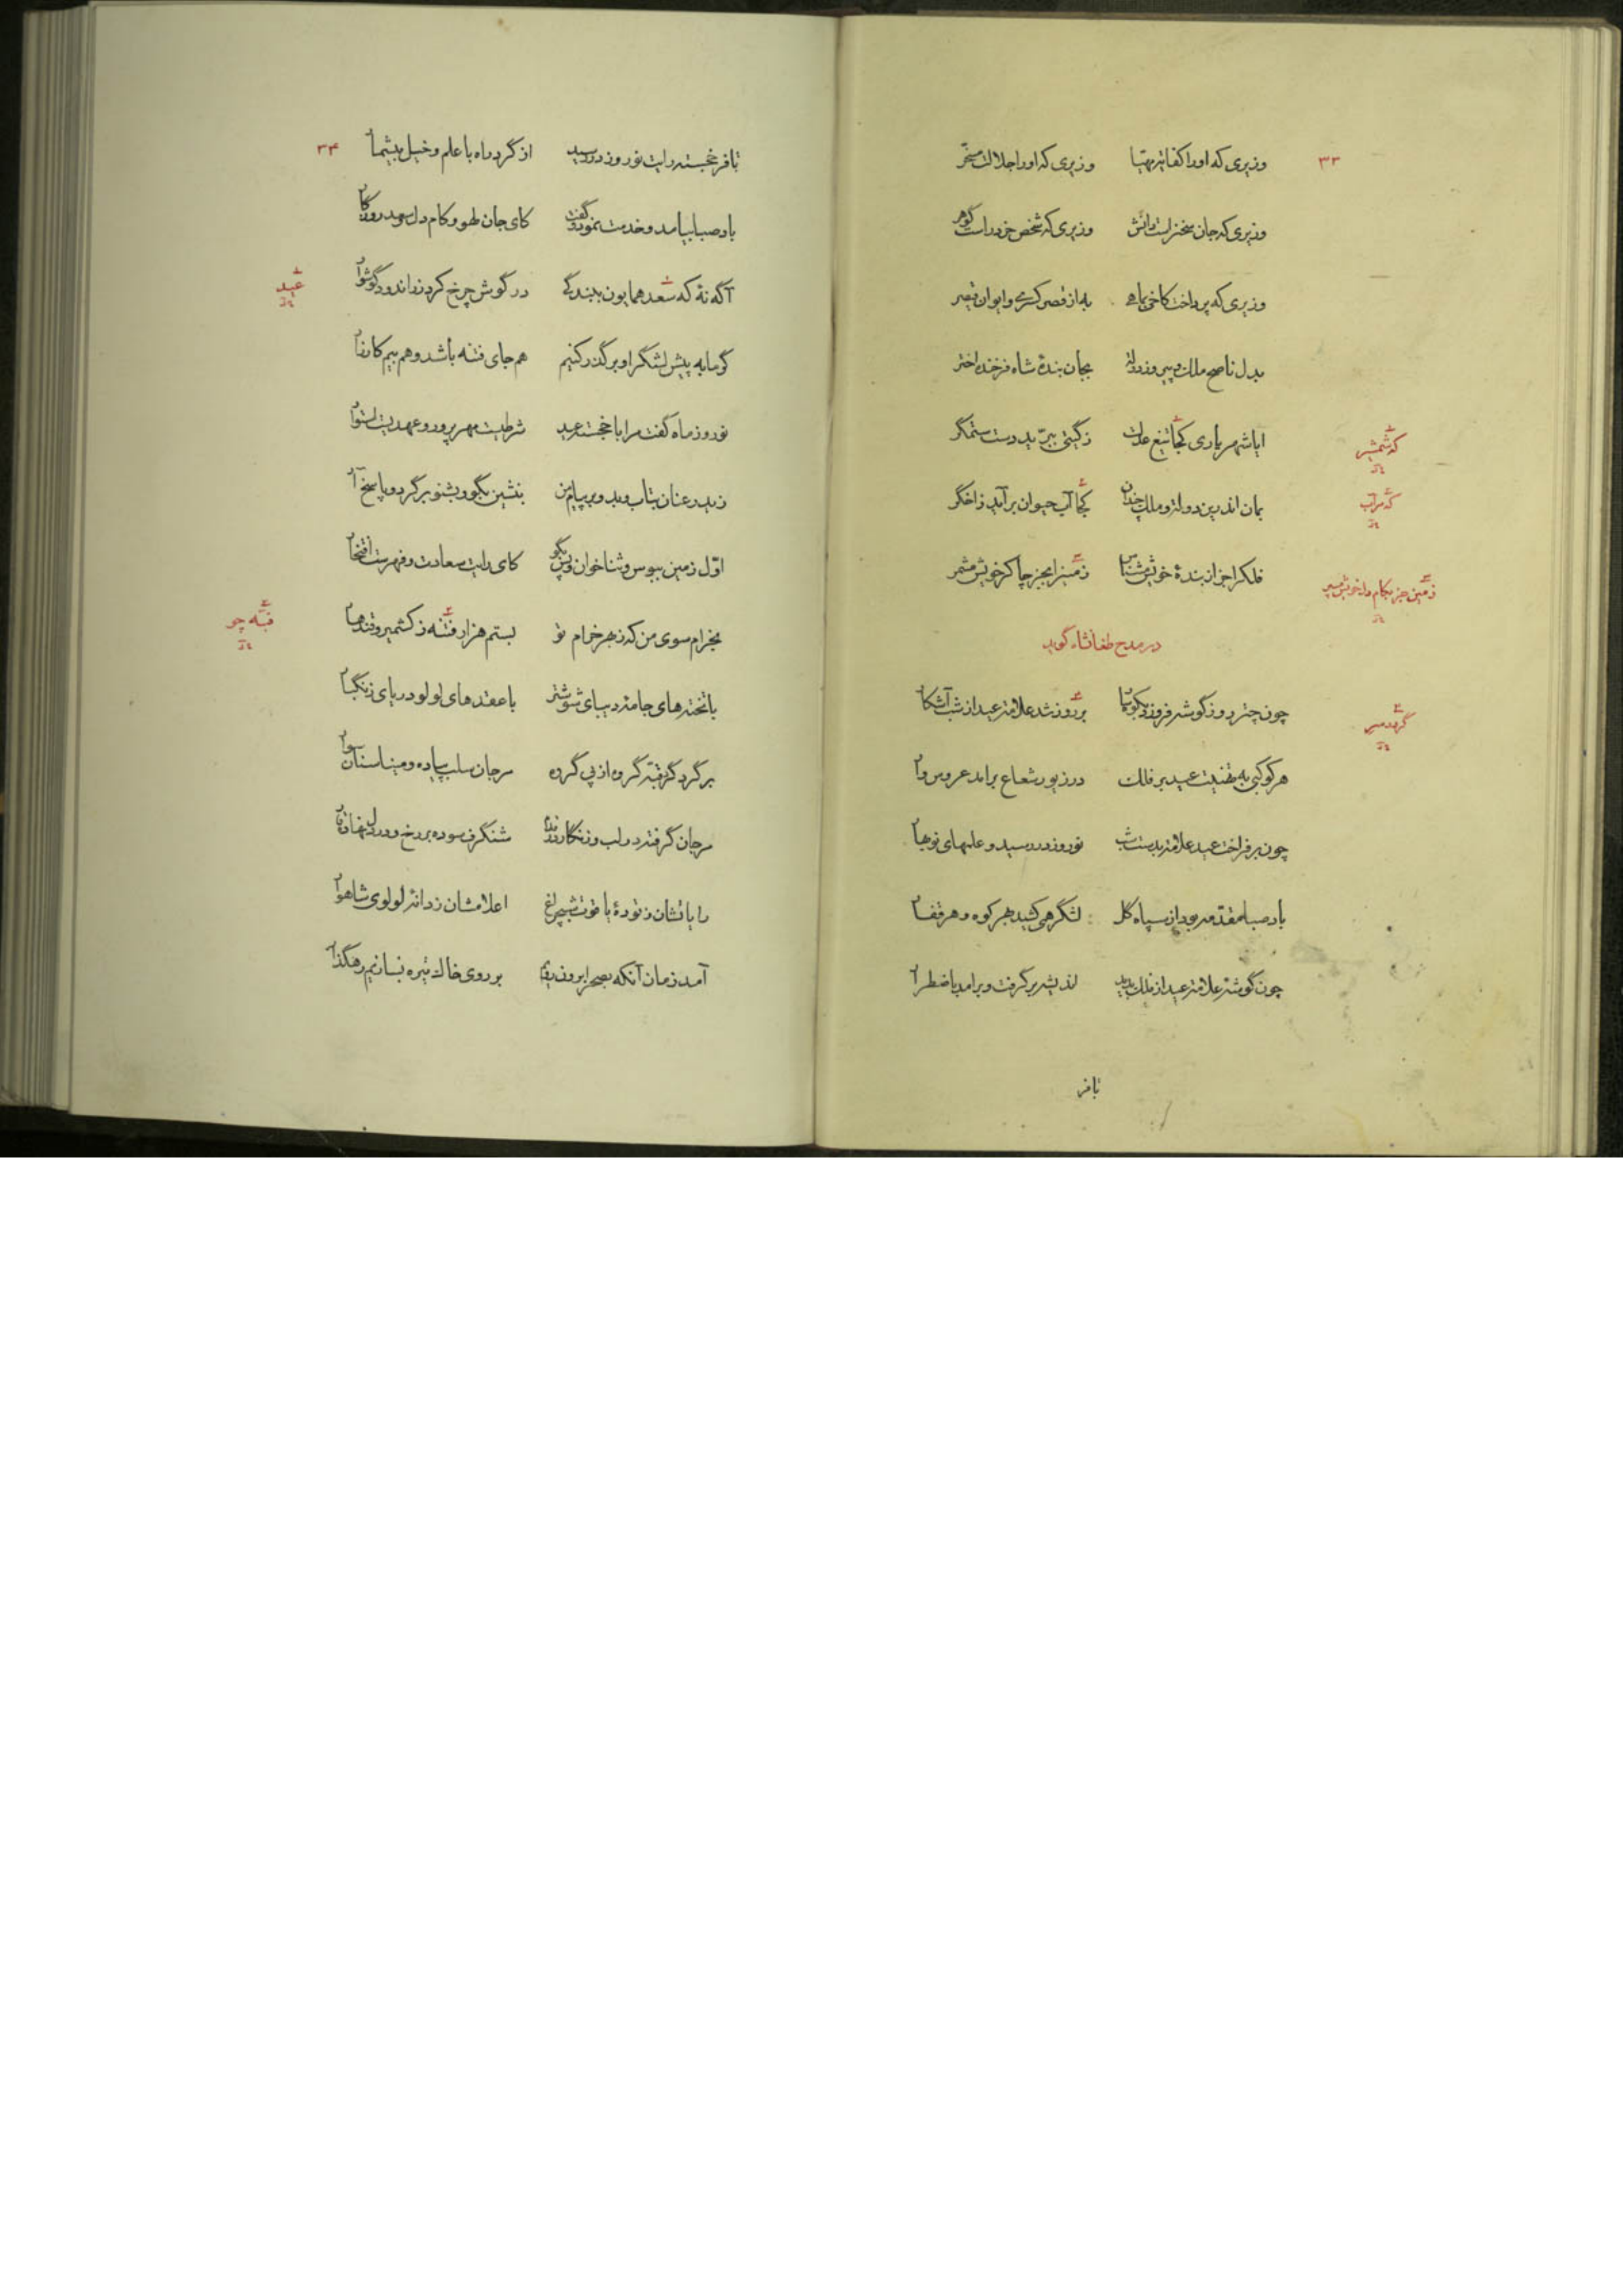 ۳۳
وزیری که او را کفایت مهیا وزیری که او را جلالت مسخر
وزیری که جان سخن راست دانش وزیری که شخص خرد راست گوهر
وزیری که پرداخت کاخی به از قصر کسری و ایوان قیصر
بدل ناصح ملک و پیروز دولت بجان بندهٔ شاه فرخنده اختر
ایا شهریاری کجا تیغ عدلت ز گیتی ببرید دست ستمگر
که شمشیر
بمان اندرین دولت و ملک چندان کجا آب حیوان برآید ز اخگر
فلک را جز از بندهٔ خویش مشناس زمین را بجز چاکر خویش مشمر
زمین جز بکام خویش مسپر
در مدح طغانشاه گوید
چون چتر روز گوشه فرو زد بکوهسار بر روز شد علامت عید از شب آشکار
هر کوکبی به تهنیت عید بر فلک در زیور شعاع برامد عروس وار
چون برفراخت عید علامت بدست شب نوروز در رسید و علمهای نوبهار
باد صبا مقدمه بود از سپاه گل لشگر همی کشید بهر کوه و هر قفار
چون گوشهٔ علامت عید از فلک بدید اندیشه بر گرفت و برامد باضطرار
تا فر
۳۴
تا فر خجسته رایت نوروز در رسید از گرد راه با علم و خیل بیشمار
باد صبا بیامد و خدمت نمود و گفت کای جان لهو و کام دل و عمر روزگار
آگه نهٔ که سعد همایون ببندگی در گوش چرخ کرد زر اندود گوشوار
عید
گر ما به پیش لشگر او بر گذر کنیم هم جای فتنه باشد و هم بیم کارزار
نوروز ماه گفت مرا با خجسته عید شرطیست مهرپرور و عهدیست استوار
زیدر عنان بتاب و ببر پیام من بنشین بگو و بشنو و برگرد و پاسخ آر
اول زمین ببوس و ثنا خوان و پس بگو کای رایت سعادت و فهرست افتخار
بخرام سوی من که ز بهر خرام تو بستم هزار فتنه ز کشمیر و قندهار
قبه چو
با تخته های جامهٔ دیبای شوشتر با عقدهای لولو دریای زنگبار
بر گرد گرد قبه گروه از پی گروه مرجان سلب پیاده و مینا سنان سوار
مرجان گرفته در لب و زنگار شنگرف سوده بر رخ و در دل نهاده نار
رایاتشان ز تودهٔ یاقوت شب چراغ اعلامشان ز دانهٔ لولوی شاهوار
آمد زمان آنکه بصحرا برون رویم بر روی خاک تیره بسازیم رهگذار